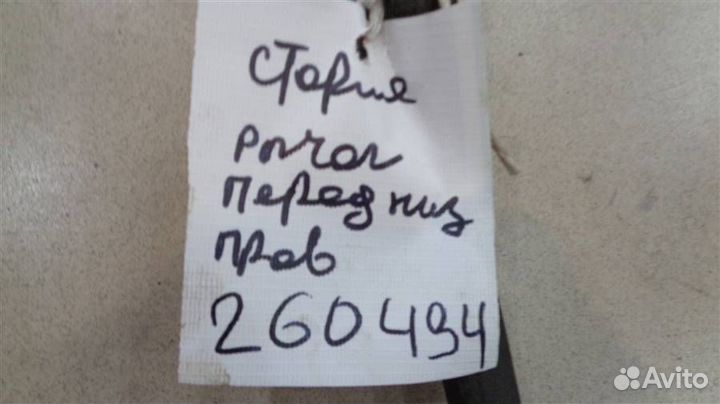 Стария
рычаг
перед низ
прав
260494
Avito